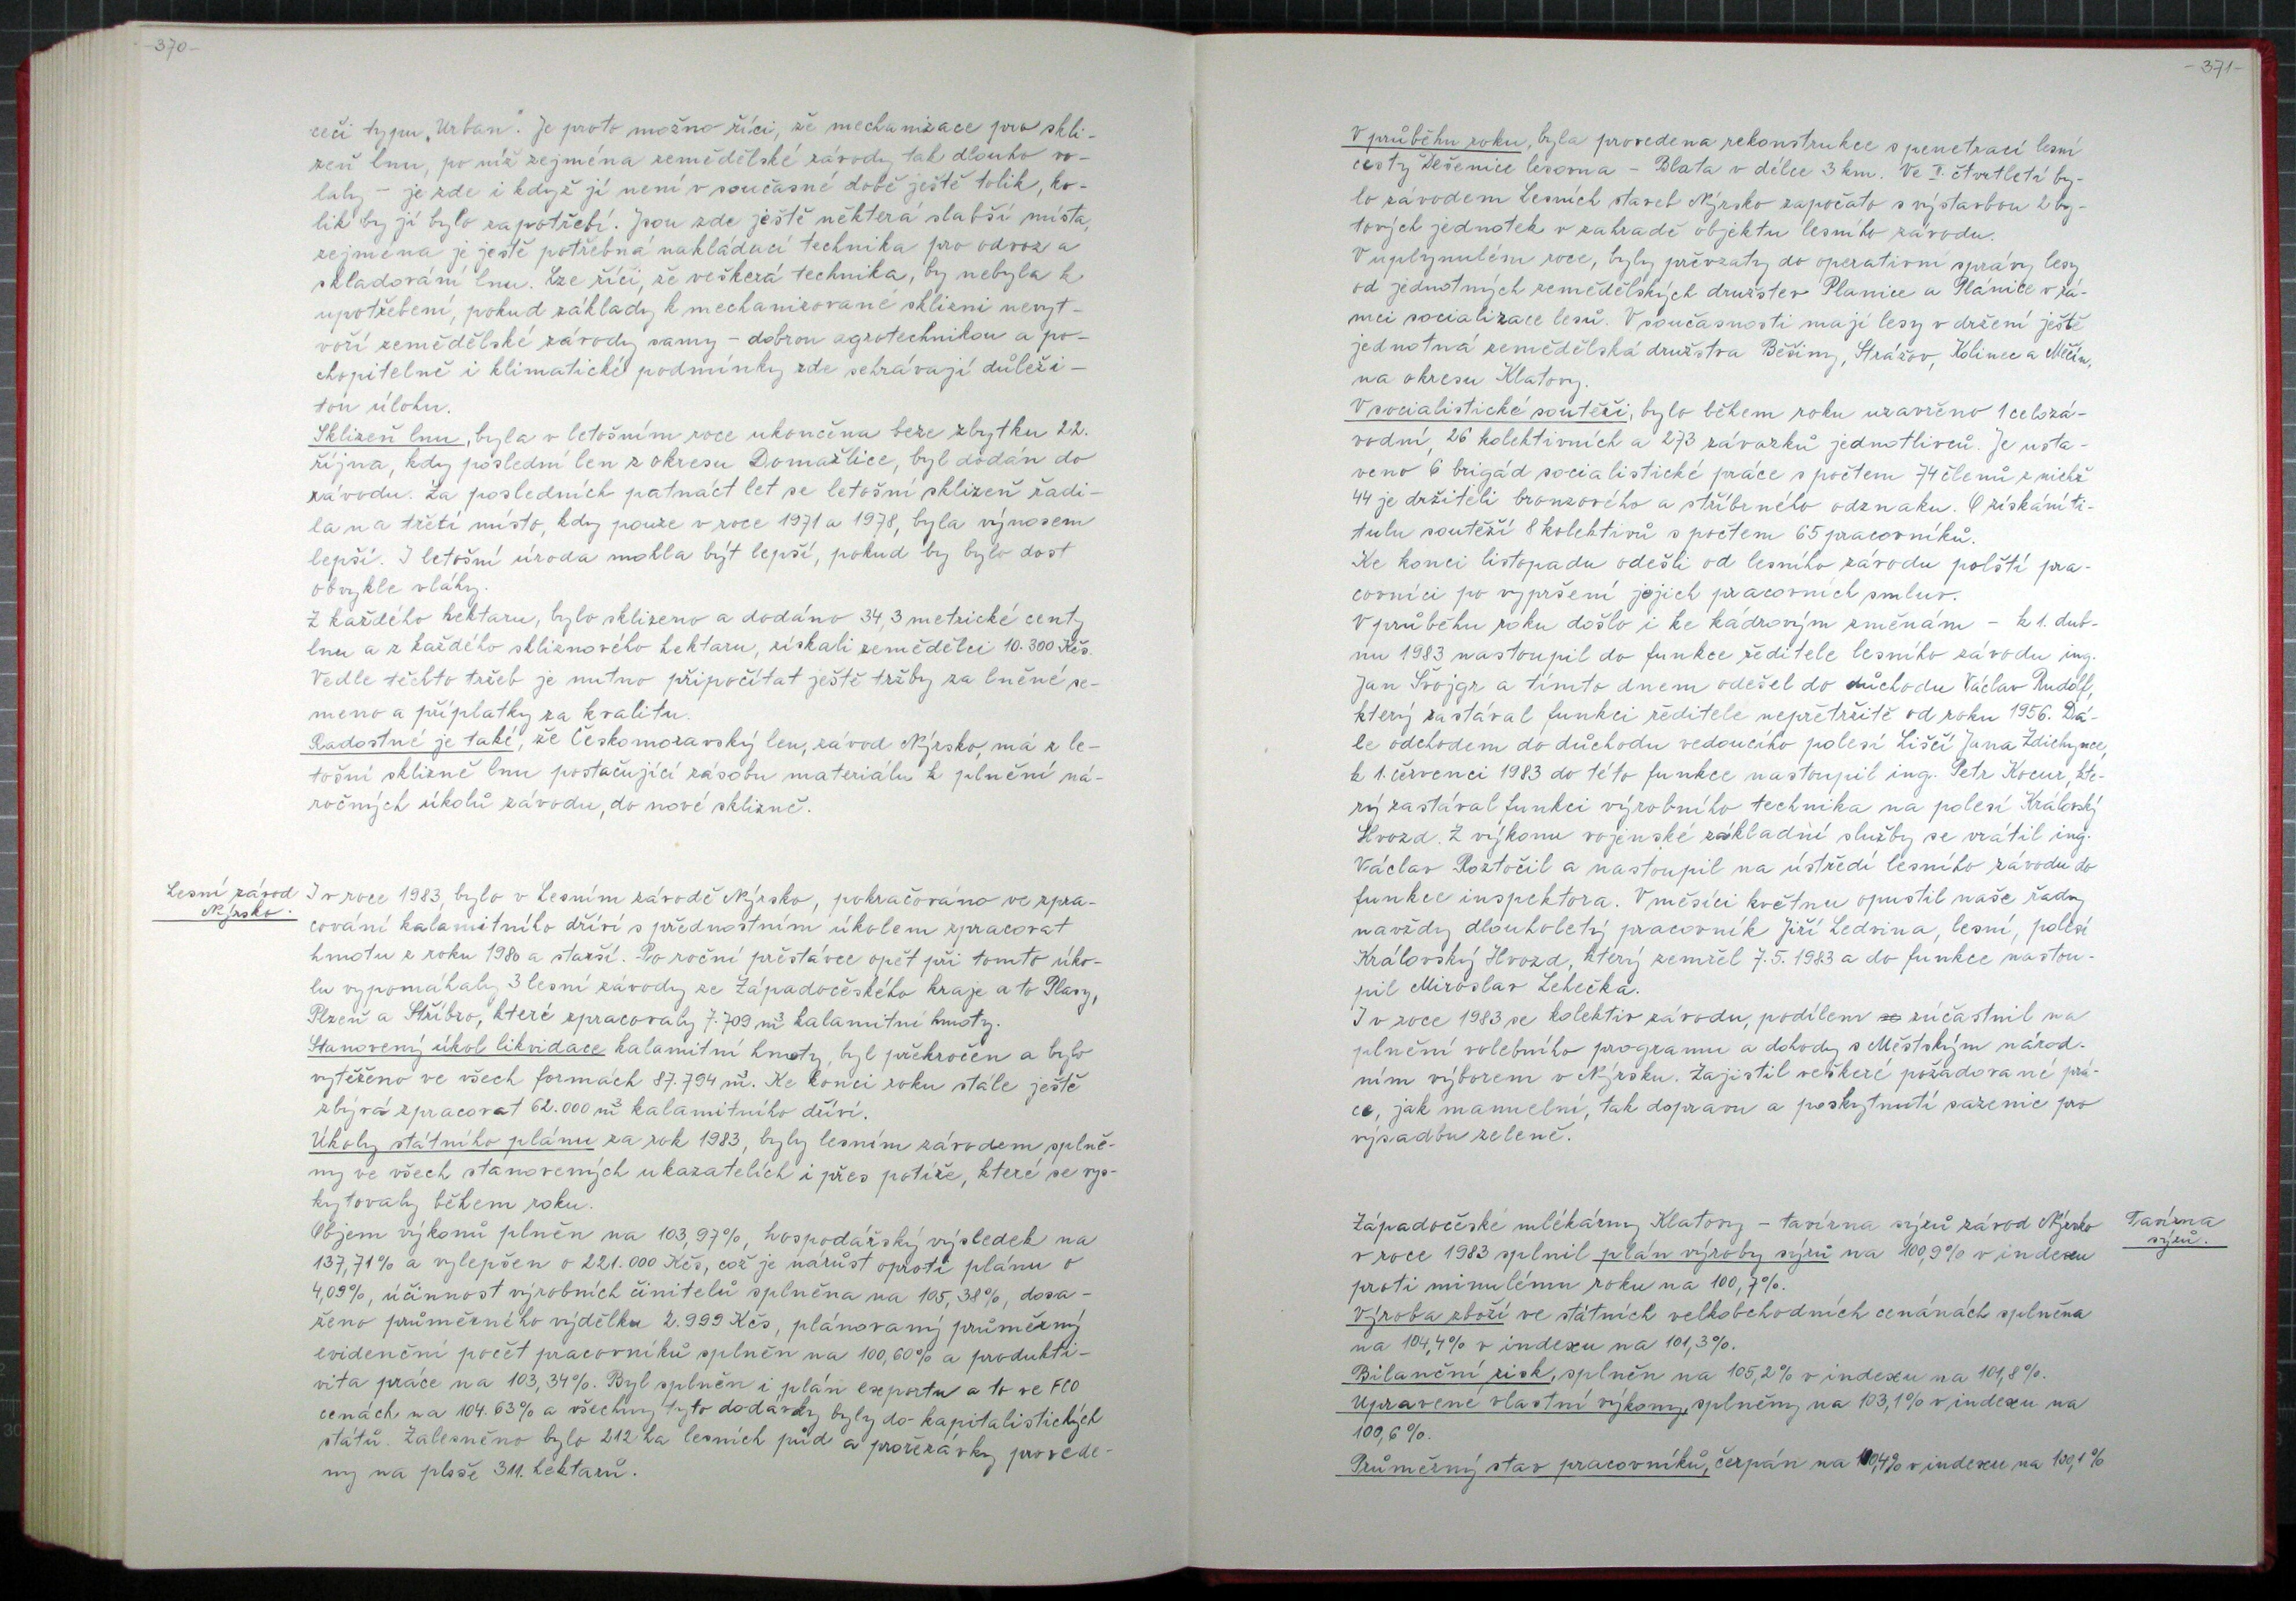 -370-
ceči typu „Urban". Je proto možno říci, že mechanizace pro skli-
zeň lnu, po níž zejména zemědělské závody tak dlouho vo-
laly - je zde i když jí není v současné době ještě tolik, ko-
lik by jí bylo zapotřebí. Jsou zde ještě některá slabší místa,
zejména je ještě potřebná nakládací technika pro odvoz a
skladování lnu. Lze říci, že veškerá technika, by nebyla k
upotřebení, pokud základy k mechanizované sklizni nevyt-
voří zemědělské závody samy - dobrou agrotechnikou a po-
chopitelně i klimatické podmínky zde sehrávají důleži-
tou úlohu.
Sklizeň lnu, byla v letošním roce ukončena beze zbytku 22.
října, kdy poslední len z okresu Domažlice, byl dodán do
závodu. Za posledních patnáct let se letošní sklizeň řadi-
la na třetí místo, kdy pouze v roce 1971 a 1978, byla výnosem
lepší. I letošní úroda mohla být lepší, pokud by bylo dost
obvykle vláhy.
Z každého hektaru, bylo sklizeno a dodáno 34,3 metrické centy
lnu a z každého sklizňového hektaru, získali zemědělci 10.300 Kčs.
Vedle těchto tržeb je nutno připočítat ještě tržby za lněné se-
meno a příplatky za kvalitu.
Radostné je také, že Českomoravský len, závod Nýrsko, má z le-
tošní sklizně lnu postačující zásobu materiálu k plnění ná-
ročných úkolů závodu, do nové sklizně.
Lesní závod
Nýrsko.
I v roce 1983, bylo v Lesním závodě Nýrsko, pokračováno ve zpra-
cování kalamitního dříví s přednostním úkolem zpracovat
hmotu z roku 1980 a starší. Po roční přestávce opět při tomto úko-
lu vypomáhaly 3 lesní závody ze Západočeského kraje a to Plasy,
Plzeň a Stříbro, které zpracovaly 7.709 m³ kalamitní hmoty.
Stanovený úkol likvidace kalamitní hmoty, byl překročen a bylo
vytěženo ve všech formách 87.794 m³. Ke konci roku stále ještě
zbývá zpracovat 62.000 m³ kalamitního dříví.
Úkoly státního plánu za rok 1983, byly lesním závodem splně-
ny ve všech stanovených ukazatelích i přes potíže, které se vys-
kytovaly během roku.
Objem výkonů plněn na 103,97%, hospodářský výsledek na
137,71% a vylepšen o 221.000 Kčs, což je nárůst oproti plánu o
4,09%, účinnost výrobních činitelů splněna na 105,38%, dosa-
ženo průměrného výdělku 2.999 Kčs, plánovaný průměrný
evidenční počet pracovníků splněn na 100,60% a produkti-
vita práce na 103,34%. Byl splněn i plán exportu a to ve FCO
cenách na 104.63% a všechny tyto dodávky byly do kapitalistických
států. Zalesněno bylo 212 ha lesních půd a prořezávky provede-
ny na ploše 311. hektarů.
-371-
V průběhu roku, byla provedena rekonstrukce s penetrací lesní
cesty Dešenice lesovna - Blata v délce 3 km. Ve II. čtvrtletí by-
lo závodem Lesních staveb Nýrsko započato s výstavbou 2 by-
tových jednotek v zahradě objektu lesního závodu.
V uplynulém roce, byly převzaty do operativní správy lesy
od jednotných zemědělských družstev Planice a Plánice v rá-
mci socializace lesů. V současnosti mají lesy v držení ještě
jednotná zemědělská družstva Běšiny, Strážov, Kolinec a Měčín,
na okresu Klatovy.
V socialistické soutěži, bylo během roku uzavřeno 1 celozá-
vodní, 26 kolektivních a 273 závazků jednotlivců. Je usta-
veno 6 brigád socialistické práce s počtem 74 členů z nichž
44 je držiteli bronzového a stříbrného odznaku. O získání ti-
tulu soutěží 8 kolektivů s počtem 65 pracovníků.
Ke konci listopadu odešli od lesního závodu polští pra-
covníci po vypršení jejich pracovních smluv.
V průběhu roku došlo i ke kádrovým změnám - k 1. dub-
nu 1983 nastoupil do funkce ředitele lesního závodu ing.
Jan Švojgr a tímto dnem odešel do důchodu Václav Rudolf,
který zastával funkci ředitele nepřetržitě od roku 1956. Dá-
le odchodem do důchodu vedoucího polesí Liščí Jana Zdichynce,
k 1. červenci 1983 do této funkce nastoupil ing. Petr Kocur, kte-
rý zastával funkci výrobního technika na polesí Královský
Hvozd. Z výkonu vojenské základní služby se vrátil ing.
Václav Roztočil a nastoupil na ústředí lesního závodu do
funkce inspektora. V měsíci květnu opustil naše řady
navždy dlouholetý pracovník Jiří Ledvina, lesní, polesí
Královský Hvozd, který zemřel 7.5.1983 a do funkce nastou-
pil Miroslav Lehečka.
I v roce 1983 se kolektiv závodu, podílem se zúčastnil na
plnění volebního programu a dohody s Městským národ-
ním výborem v Nýrsku. Zajistil veškeré požadované prá-
ce, jak manuelní, tak dopravu a poskytnutí sazenic pro
výsadbu zeleně.
Západočeské mlékárny Klatovy - tavírna sýrů závod Nýrsko
v roce 1983 splnil plán výroby sýrů na 100,9% v indexu
proti minulému roku na 100,7%.
Tavírna
sýrů.
Výroba zboží ve státních velkobchodních cenánách splněna
na 104,4% v indexu na 101,3%.
Bilanční zisk, splněn na 105,2% v indexu na 101,8%.
Upravené vlastní výkony, splněny na 103,1% v indexu na
100,6%.
Průměrný stav pracovníků, čerpán na 100,4% v indexu na 100,1%